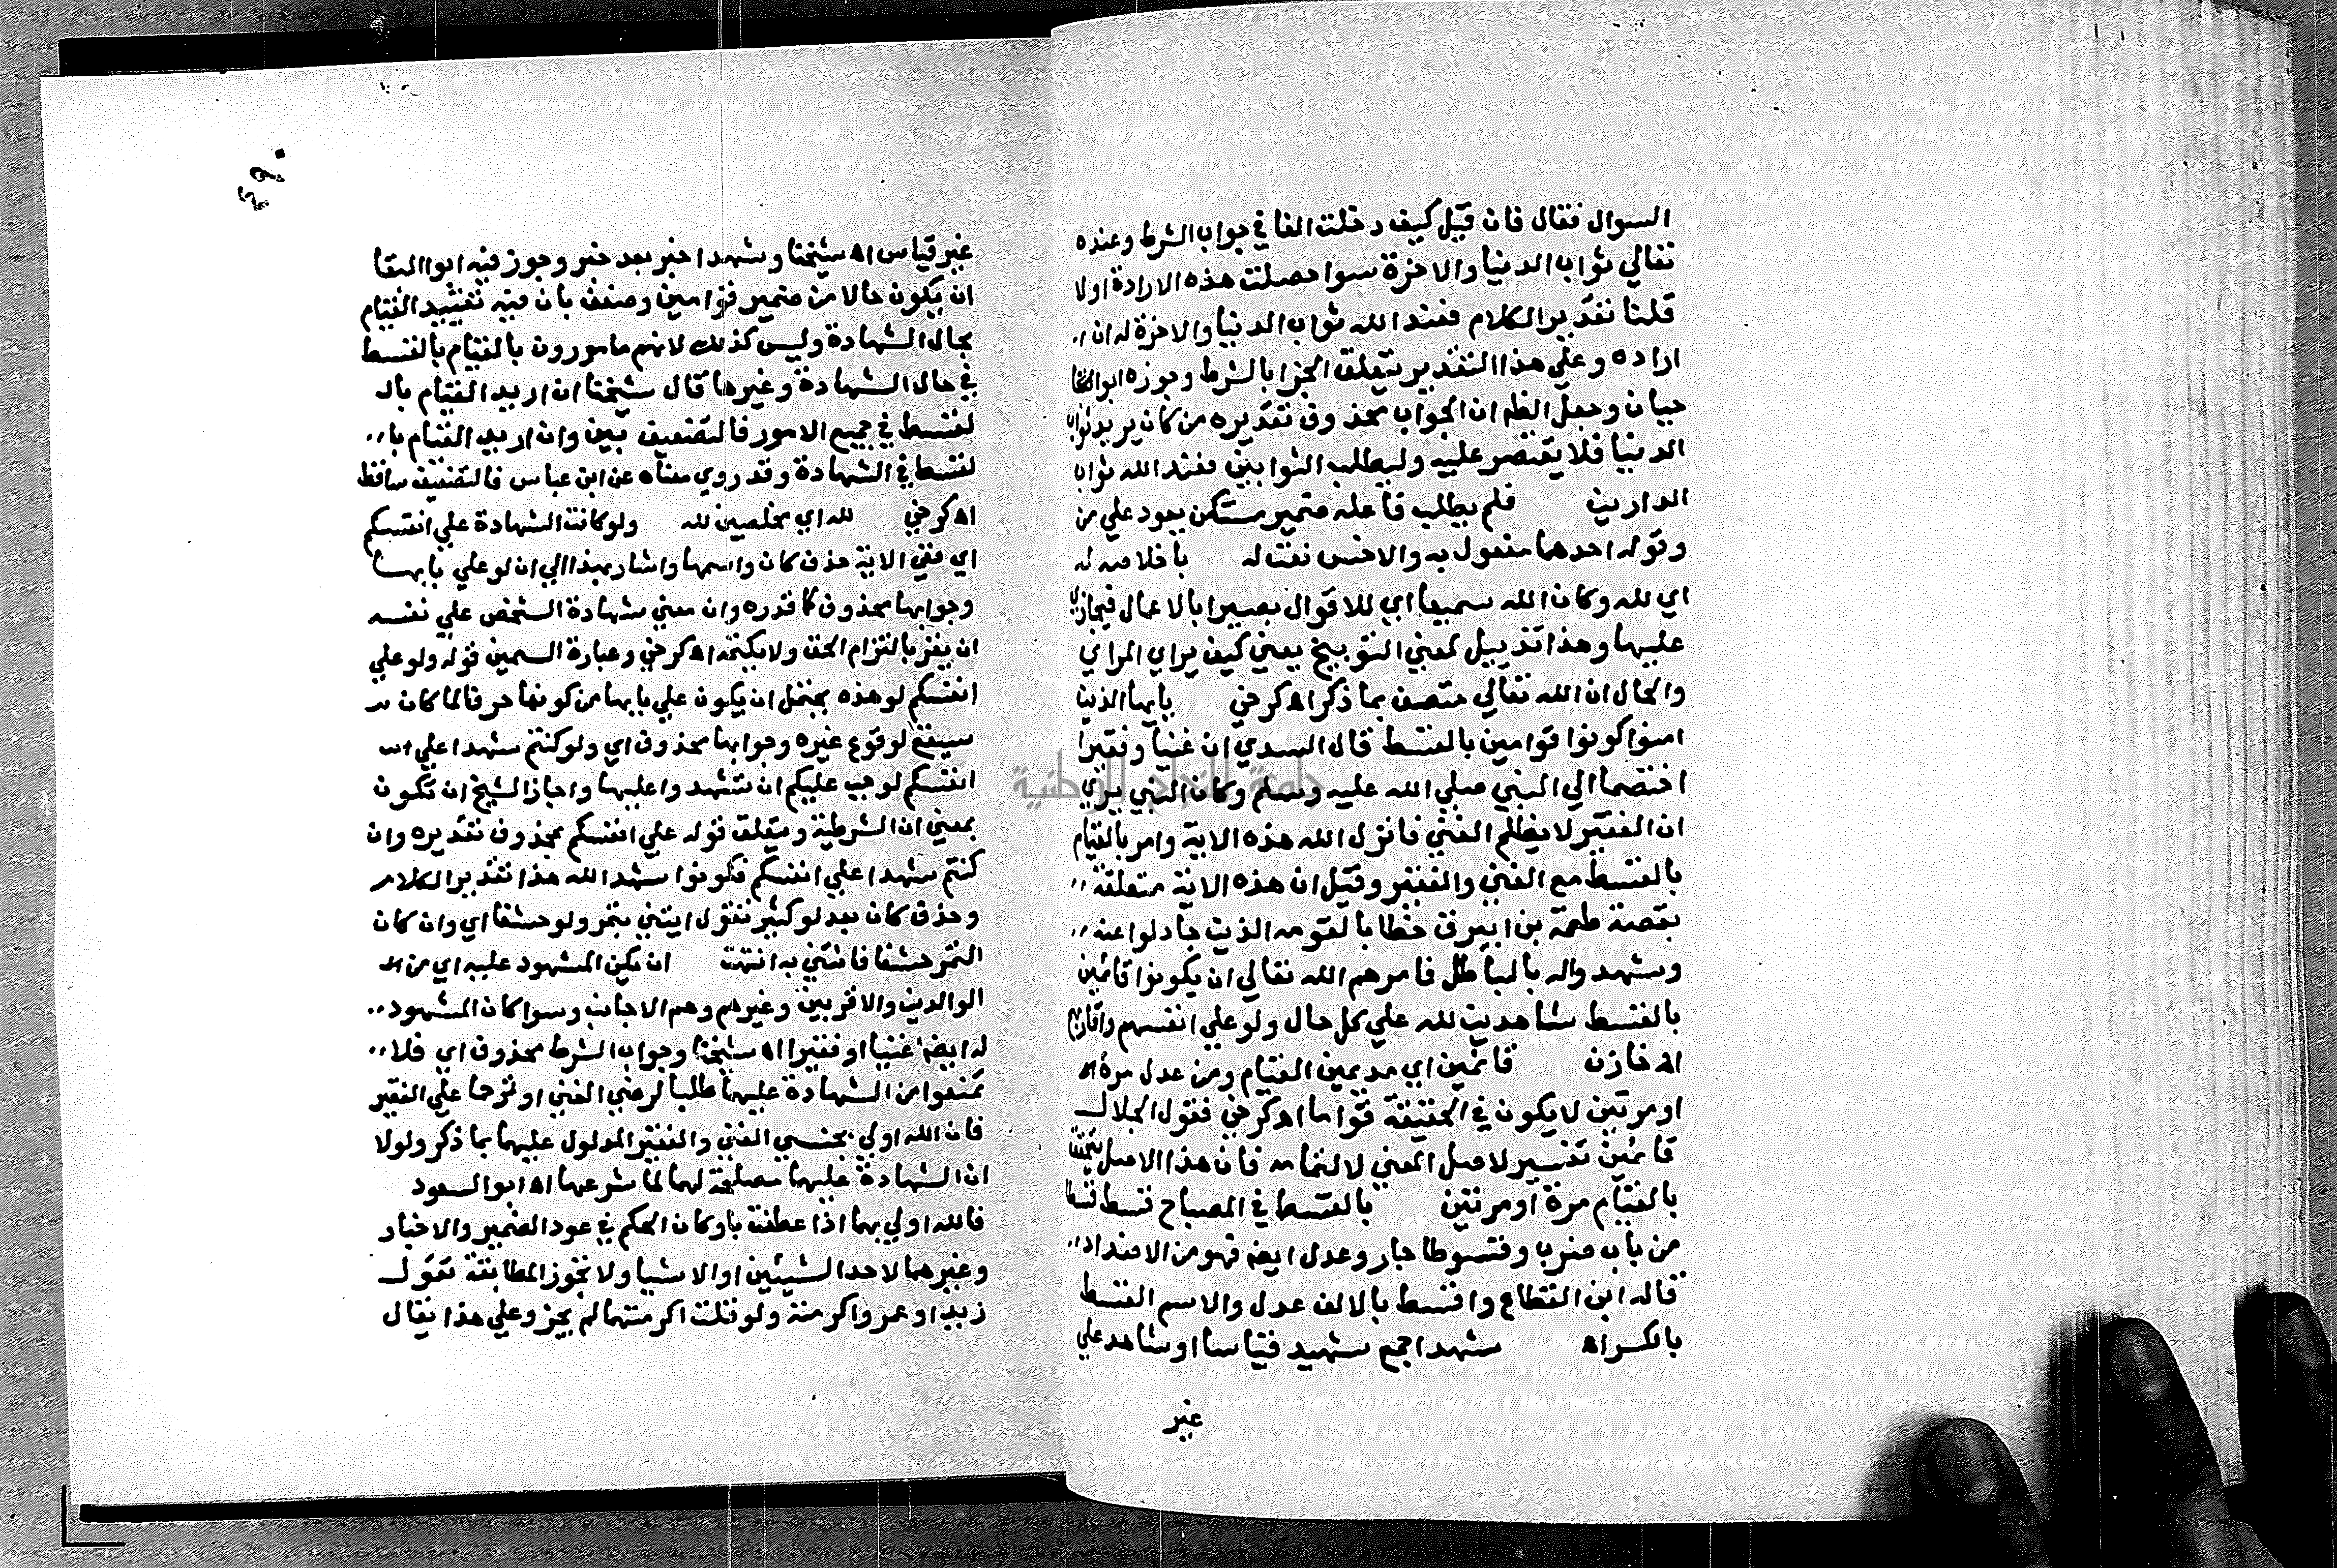 السوال فقال فان قيل كيف دخلت الفا في جواب الشرط وعنده
تعالي ثواب الدنيا والاخرة سوا حصلت هذه الارادة اولا
قلنا تقدير الكلام فعند الله ثواب الدنيا والاخرة له ان
اراده وعلي هذا التقدير يتعلق الجزا بالشرط وجوزه ابو
حيان وجعل الظم ان الجواب محذوف تقديره من كان يريد ثواب
الدنيا فلا يقتصر عليه وليطلب الثوابين فعند الله ثواب
الدارين فلم يطلب فاعله ضمير مستكن يعود علي من
وقوله احدهما مفعول به والاخس نعت له باخلاصه له
اي لله وكان الله سميعا اي للاقوال بصيرا بالاعمال فيجازي
عليها وهذا تذييل لمعني التوبيخ يعني كيف يراي المراي
والحال ان الله تعالي متصف بما ذكر اه كرخي يايها الذين
امنوا كونوا قوامين بالقسط قال السدي ان غنيا وفقيرا
اختصما الي النبي صلي الله عليه وسلم وكان النبي يري
ان الفقير لا يظلم الغني فانزل الله هذه الاية وامر بالقيام
بالقسط مع الغني والفقير وقيل ان هذه الاية متعلقة
بقصة طعمة بن ابيرق خطابا لقومه الذين جادلوا عنه
وشهدوا له بالباطل فامرهم الله تعالي ان يكونوا قائمين
بالقسط شاهدين لله علي كل حال ولو علي انفسهم واقاربهم
اه خازن قائمين اي مديمين القيام ومن عدل مرة اه
او مرتين لا يكون في الحقيقة قواما اه كرخي فقول الجلال
قائمين تفسير لاصل المعني لا لتمامه فان هذا الاصل يتحقق
بالقيام مرة او مرتين بالقسط في المصباح قسط قسطا
من باب ضرب وقسوطا جار وعدل ايضه فهو من الاضداد
قاله ابن القطاع واقسط بالالف عدل والاسم القسط
بالكسر اه شهدا جمع شهيد قياسا او شاهد علي
غير
٤٩٠
غير قياس اه شيخنا وشهدا خبر بعد خبر وجوز فيه ابوا البقا
ان يكون حالا من ضمير قوامين وضعف بان فيه تقييد القيام
بحال الشهادة وليس كذلك لانهم مامورون بالقيام بالقسط
في حال الشهادة وغيرها قال شيخنا ان اريد القيام بال
لقسط في جميع الامور فالتضعيف بين وان اريد القيام با
لقسط في الشهادة وقد روي معناه عن ابن عباس فالتضعيف ساقط
اه كرخي لله اي مخلصين لله ولو كانت الشهادة علي انفسكم
اي ففي الاية حذف كان واسمها واشار بهذا الي ان لو علي بابها
وجوابها محذوف كما قدره وان معني شهادة الشخص علي نفسه
ان يقر بالتزام الحق ولا يكتمه اه كرخي وعبارة السمين قوله ولو علي
انفسكم لو هذه يحتمل ان يكون علي بابها من كونها حرفا لما كان
سيقع لوقوع غيره وجوابها محذوف اي ولو كنتم شهدا علي
انفسكم لوجب عليكم ان تشهدوا عليها واجاز الشيخ ان تكون
بمعني ان الشرطية ويتعلق قوله علي انفسكم بمحذوف تقديره وان
كنتم شهدا علي انفسكم فكونوا شهدا لله هذا تقدير الكلام
وحذف كان بعد لو كثير تقول ايتني بتمر ولو حشفا اي وان كان
التمر حشفا فاتني به انتهت ان يكن المشهود عليه اي من ال
الوالدين والاقربين وغيرهم وهم الاجانب وسوا كان المشهود
له ايضه غنيا او فقيرا اه شيخنا وجواب الشرط محذوف اي فلا
تمنعوا من الشهادة عليهما طلبا لرضي الغني او ترحما علي الفقير
فان الله اولي بجنسي الغني والفقير المدلول عليهما بما ذكر ولولا
ان الشهادة عليهما مصلحة لهما لما شرعها اه ابو السعود
فالله اولي بهما اذا عطفت باو كان الحكم في عود الضمير والاخبار
وغيرهما لاحد الشيئين او الاشيا ولا تجوز المطابقة تقول
زيد او عمرو اكرمته ولو قلت اكرمتهما لم يجز وعلي هذا يقال
جامعة النجاح الوطنية